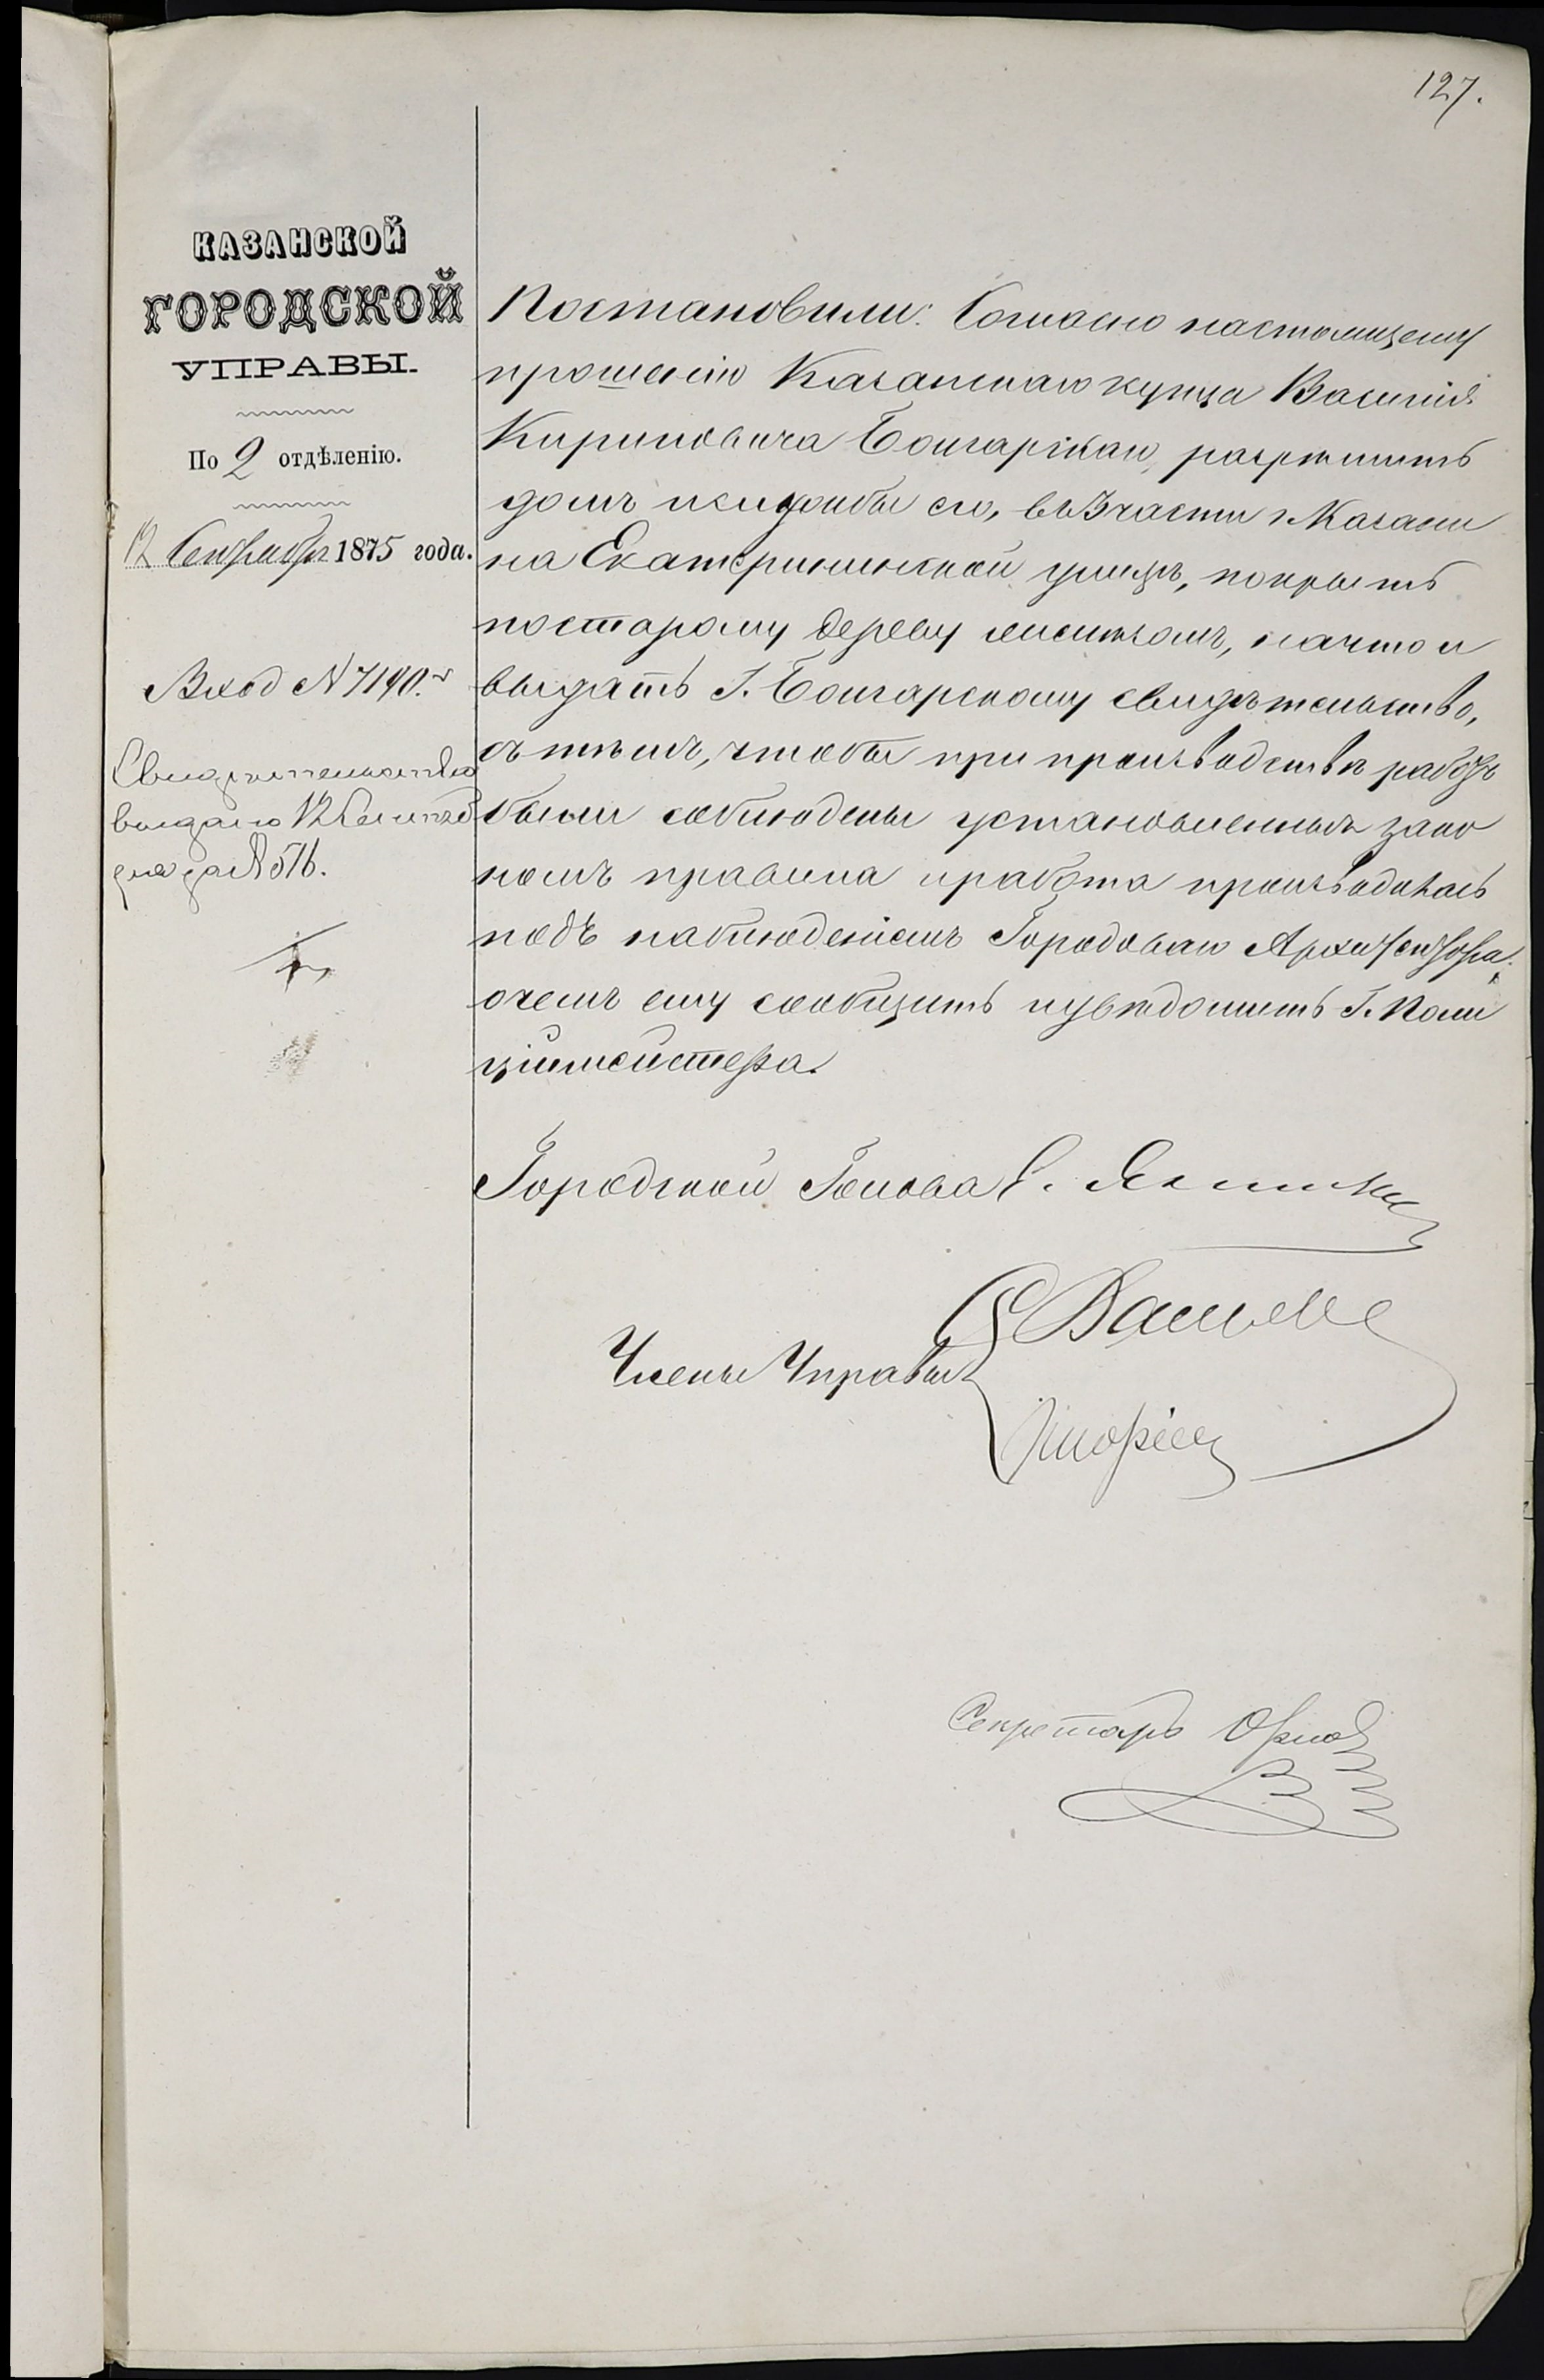 127.
КАЗАНСКОЙ
ГОРОДСКОЙ
УПРАВЫ.
По 2 отдѣленію.
12 Сентября 1875 года.
Вход № 7190.
Свидѣтельство
выдано 12 Сентяб
за № 516.
Постановили: Согласно настоящему
прошенію Казанскаго купца Василія
Кириловича Болгарскаго, разрѣшить
домъ и службы его, въ 3 части г. Казани
на Екатерининской улицѣ, покрыть
по старому дереву желѣзомъ, на что и
выдать Г. Болгарскому свидѣтельство,
съ тѣмъ, чтобы при производствѣ работъ
были соблюдены установленныя зако
номъ правила и работа производилась
подъ наблюденіемъ Городоваго Архитектора,
о чемъ ему сообщить и увѣдомить Г. Поли
ціймейстера.
Городской Голова Е.
Члены Управы
Секретарь Орлов